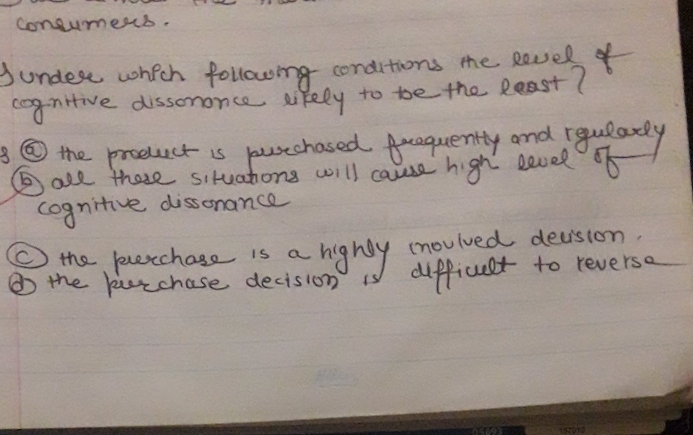 consumers.
under which following conditions the level of
cognitive dissonance likely to be the least?
(a) the product is purchased frequently and rgularly
(b) all these situations will cause high level of
cognitive dissonance
(c) the purchase is a highly inovlved decision.
(d) the purchase decision is difficult to reverse